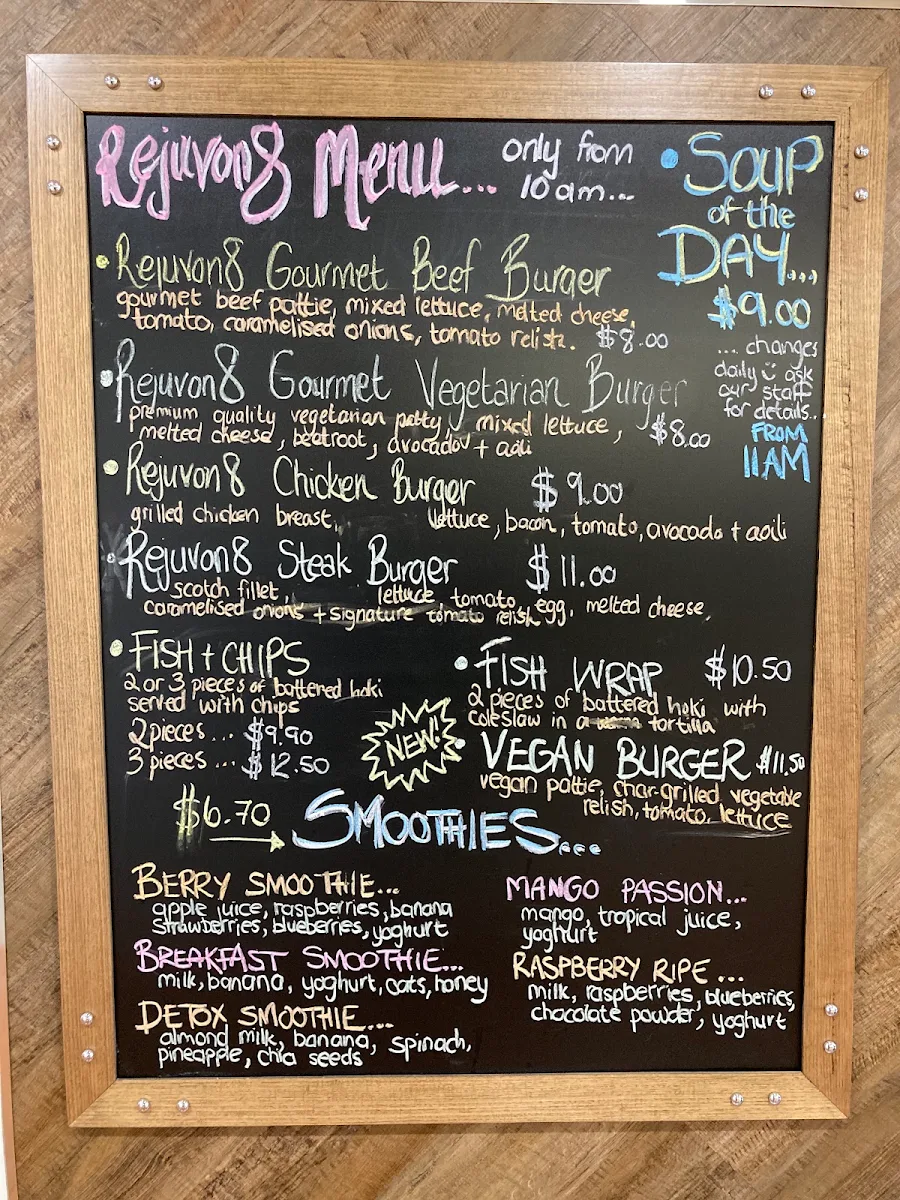 Rejuvon8 Menu... only from
10am...
• SOUP
of the
DAY...
$9.00
... changes
daily ask
our staff
for details..
FROM
11AM
• Rejuvon8 Gourmet Beef Burger
gourmet beef pattie, mixed lettuce, melted cheese,
tomato, caramelised onions, tomato relish. $8.00
• Rejuvon8 Gourmet Vegetarian Burger
premium quality vegetarian patty, mixed lettuce, $8.00
melted cheese, beatroot, avocado + aoili
• Rejuvon8 Chicken Burger $9.00
grilled chicken breast, lettuce, bacon, tomato, avocado + aoili
• Rejuvon8 Steak Burger $11.00
scotch fillet, lettuce tomato, egg, melted cheese,
caramelised onions + signature tomato relish
• FISH + CHIPS
2 or 3 pieces of battered hoki
served with chips
2 pieces... $9.90
3 pieces ... $12.50
• FISH WRAP $10.50
2 pieces of battered hoki with
coleslaw in a tortilla
NEW!
• VEGAN BURGER $11.50
vegan pattie, char-grilled vegetable
relish, tomato, lettuce
$6.70 → SMOOTHIES...
BERRY SMOOTHIE...
apple juice, raspberries, banana
strawberries, blueberries, yoghurt
BREAKFAST SMOOTHIE...
milk, banana, yoghurt, oats, honey
DETOX SMOOTHIE...
almond milk, banana, spinach,
pineapple, chia seeds
MANGO PASSION...
mango, tropical juice,
yoghurt
RASPBERRY RIPE...
milk, raspberries, blueberries,
chocolate powder, yoghurt